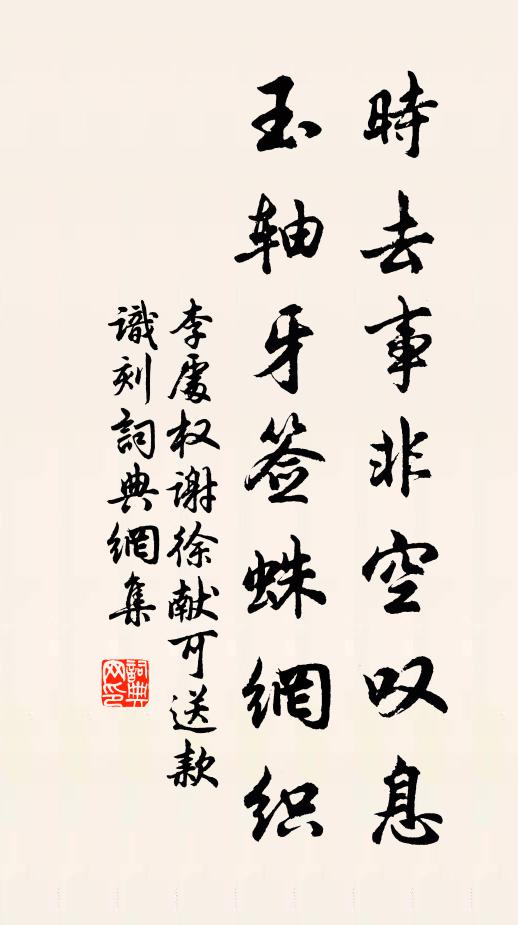 時去事非空叹息
玉轴牙签蛛網织
李處权谢徐献可送款
識刻詞典網集
詞典
网印